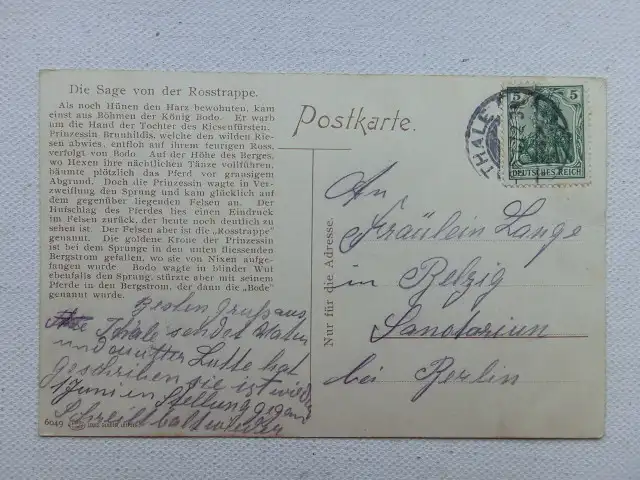 Die Sage von der Rosstrappe.
Als noch Hünen den Harz bewohnten, kam
einst aus Böhmen der König Bodo. Er warb
um die Hand der Tochter des Riesenfürsten,
Prinzessin Brunhildis, welche den wilden Rie-
sen abwies, entfloh auf ihrem teurigen Ross,
verfolgt von Bodo. Auf der Höhe des Berges,
wo Hexen ihre nächtlichen Tänze vollführen,
bäumte plötzlich das Pferd vor grausigem
Abgrund. Doch die Prinzessin wagte in Ver-
zweiflung den Sprung und kam glücklich auf
dem gegenüber liegenden Felsen an. Der
Hufschlag des Pferdes lies einen Eindruck
im Felsen zurück, der heute noch deutlich zu
sehen ist. Der Felsen aber ist die „Rosstrappe"
genannt. Die goldene Krone der Prinzessin
ist bei dem Sprunge in den unten fliessenden
Bergstrom gefallen, wo sie von Nixen aufge-
fangen wurde. Bodo wagte in blinder Wut
ebenfalls den Sprung, stürzte aber mit seinem
Pferde in den Bergstrom, der dann die „Bode"
genannt wurde.
Besten Gruß aus
Thale sendet
und Lotte hat
geschrieben sie ist
Juni in Stellung
Schreib bald wieder
6049
Postkarte.
Nur für die Adresse.
THALE
5 5
DEUTSCHES REICH
An
Fräulein Lange
in Belzig
Sanatorium
bei Berlin